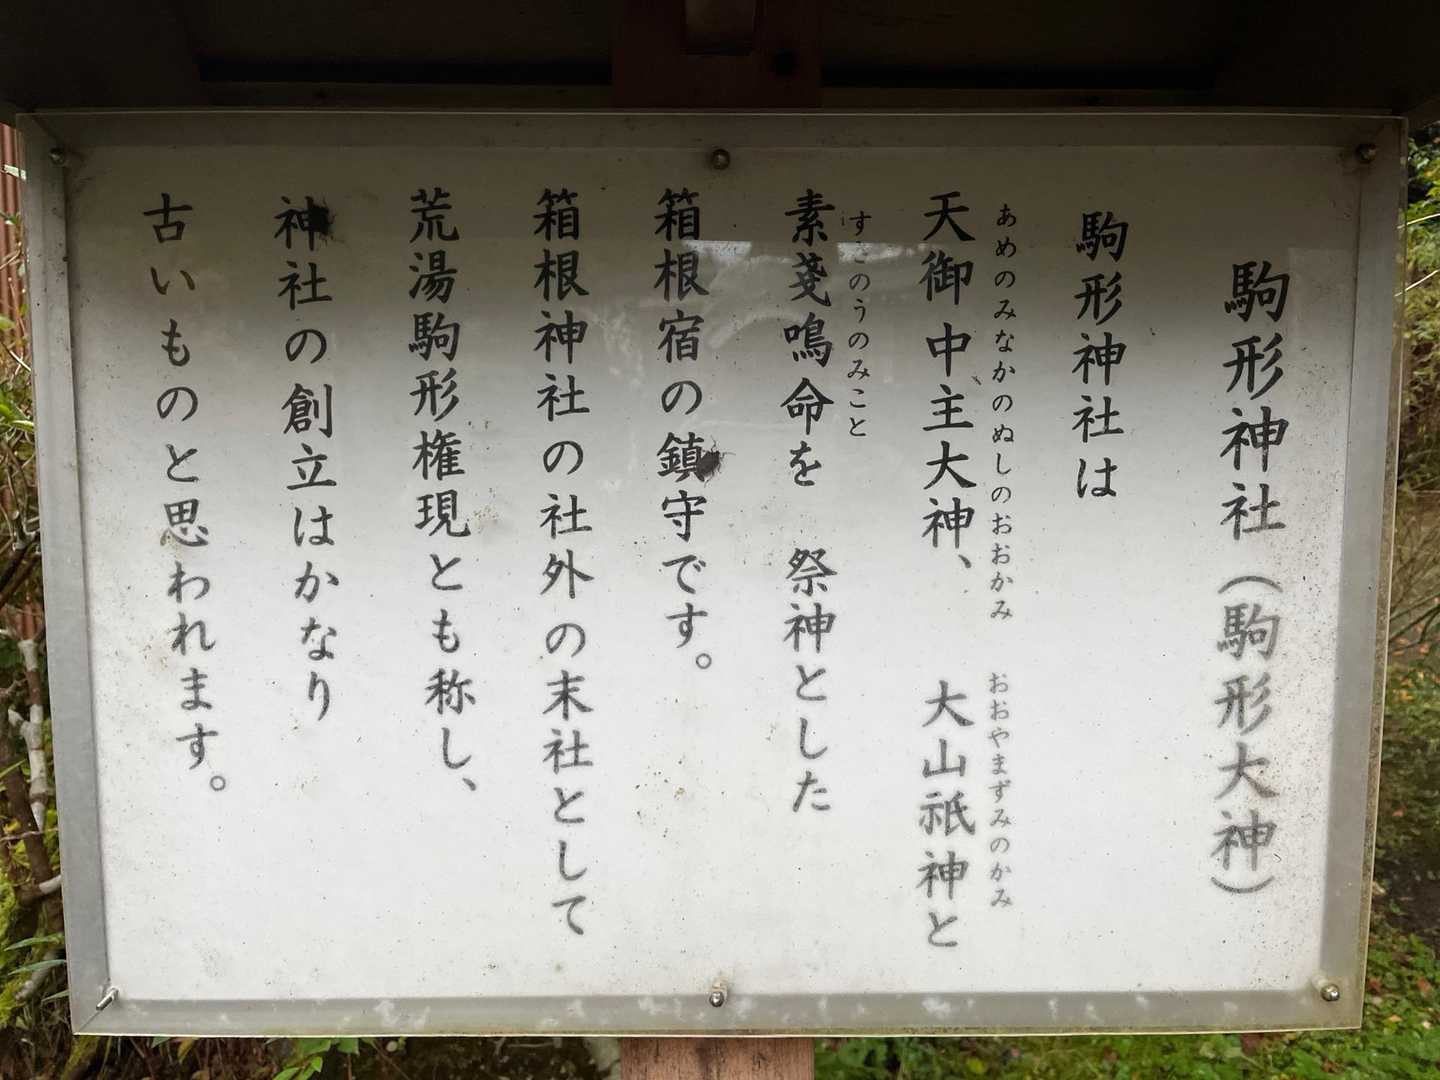 駒形神社（駒形大神）
駒形神社は
あめのみなかのぬしのおおかみ　おおやまずみのかみ
天御中主大神、　大山祇神と
すさのうのみこと
素戔鳴命を　祭神とした
箱根宿の鎮守です。
箱根神社の社外の末社として
荒湯駒形権現とも称し、
神社の創立はかなり
古いものと思われます。